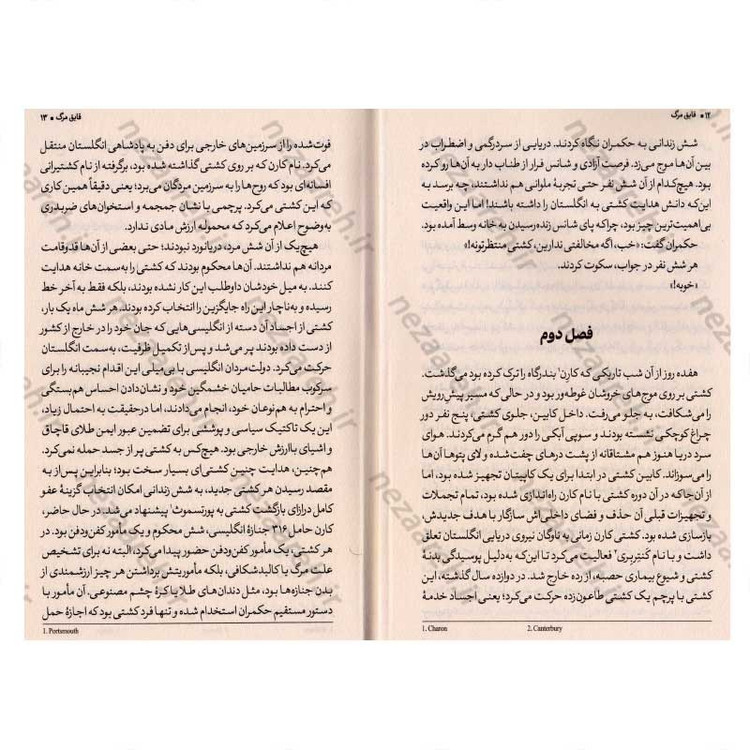 ۱۲ • قایق مرگ
شش زندانی به حکمران نگاه کردند. دریایی از سردرگمی و اضطراب در
بین آن‌ها موج می‌زد. فرصت آزادی و شانس فرار از طناب دار به آن‌ها رو کرده
بود. هیچ‌کدام از آن شش نفر حتی تجربهٔ ملوانی هم نداشتند، چه برسد به
این‌که دانش هدایت کشتی به انگلستان را داشته باشند! اما این واقعیت
بی‌اهمیت‌ترین چیز بود، چراکه پای شانس زنده رسیدن به خانه وسط آمده بود.
حکمران گفت: «خب، اگه مخالفتی ندارین، کشتی منتظرتونه!»
هر شش نفر در جواب، سکوت کردند.
«خوبه!»
فصل دوم
هفده روز از آن شب تاریکی که کارن¹ بندرگاه را ترک کرده بود می‌گذشت.
کشتی بر روی موج‌های خروشان غوطه‌ور بود و در حالی که مسیر پیش‌رویش
را می‌شکافت، به جلو می‌رفت. داخل کابین، جلوی کشتی، پنج نفر دور
چراغ کوچکی نشسته بودند و سوپی آبکی را دور هم گرم می‌کردند. هوای
سرد دریا هنوز هم مشتاقانه از پشت درهای چفت‌شده و لای پتوها آن‌ها
را می‌سوزاند. کابین کشتی در ابتدا برای یک کاپیتان تجهیز شده بود، اما
از آن‌جاکه در آن دوره کشتی با نام کارن راه‌اندازی شده بود، تمام تجملات
و تجهیزات قبلی آن حذف و فضای داخلی‌اش سازگار با هدف جدیدش،
بازسازی شده بود. کشتی کارن زمانی به ناوگان نیروی دریایی انگلستان تعلق
داشت و با نام کَنتِربِری² فعالیت می‌کرد تا این‌که به‌دلیل پوسیدگی بدنهٔ
کشتی و شیوع بیماری حصبه، از رده خارج شد. در دوازده سال گذشته، این
کشتی با پرچم یک کشتی طاعون‌زده حرکت می‌کرد؛ یعنی اجساد خدمهٔ
1. Charon 2. Canterbury
قایق مرگ • ۱۳
فوت‌شده را از سرزمین‌های خارجی برای دفن به پادشاهی انگلستان منتقل
می‌کرد. نام کارن که بر روی کشتی گذاشته شده بود، برگرفته از نام کشتیرانی
افسانه‌ای بود که روح‌ها را به سرزمین مردگان می‌برد؛ یعنی دقیقاً همین کاری
که این کشتی می‌کرد. پرچمی با نشان جمجمه و استخوان‌های ضربدری
به‌وضوح اعلام می‌کرد که محموله ارزش مادی ندارد.
هیچ‌یک از آن شش مرد، دریانورد نبودند؛ حتی بعضی از آن‌ها قدوقامت
مردانه هم نداشتند. آن‌ها محکوم بودند که کشتی را به‌سمت خانه هدایت
کنند. به میل خودشان داوطلب این کار نشده بودند، بلکه فقط به آخر خط
رسیده و به‌ناچار این راه جایگزین را انتخاب کرده بودند. هر شش ماه یک بار،
کشتی از اجساد آن دسته از انگلیسی‌هایی که جان خود را در خارج از کشور
از دست داده بودند پر می‌شد و پس از تکمیل ظرفیت، به‌سمت انگلستان
حرکت می‌کرد. دولت‌مردان انگلیسی با بی‌میلی این اقدام نجیبانه را برای
سرکوب مطالبات حامیان خشمگین خود و نشان‌دادن احساس هم‌بستگی
و احترام به هم‌نوعان خود، انجام می‌دادند، اما درحقیقت به احتمال زیاد،
این یک تاکتیک سیاسی و پوششی برای تضمین عبور ایمن طلای قاچاق
و اشیای باارزش خارجی بود. هیچ‌کس به کشتی پر از جسد حمله نمی‌کرد.
هم‌چنین، هدایت چنین کشتی‌ای بسیار سخت بود؛ بنابراین پس از به
مقصد رسیدن هر کشتی جدید، به شش زندانی امکان انتخاب گزینهٔ عفو
کامل درازای بازگشت کشتی به پورتسموث¹ پیشنهاد می‌شد. در حال حاضر،
کارن حامل ۳۱۶ جنازهٔ انگلیسی، شش محکوم و یک مأمور کفن‌ودفن بود. در
هر کشتی، یک مأمور کفن‌ودفن حضور پیدا می‌کرد، البته نه برای تشخیص
علت مرگ یا کالبدشکافی، بلکه مأموریتش برداشتن هر چیز ارزشمندی از
بدن جنازه‌ها بود، مثل دندان‌های طلا یا کرهٔ چشم مصنوعی. آن مأمور با
دستور مستقیم حکمران استخدام شده و تنها فرد کشتی بود که اجازهٔ حمل
1. Portsmouth
nezaareh.ir